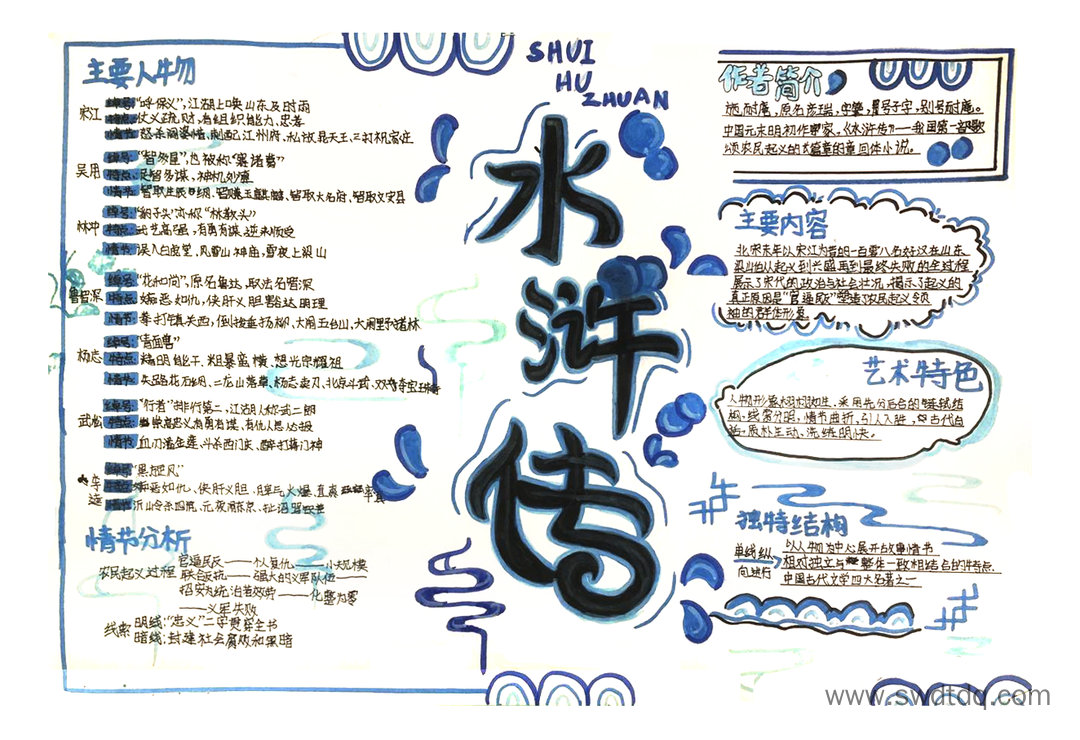 主要人物
宋江
绰号:"呼保义",江湖上唤山东及时雨
特点:仗义疏财,有组织能力,忠孝
情节:怒杀阎婆惜,刺配江州府,私放晁天王,三打祝家庄
吴用
绰号:"智多星",也被称"赛诸葛"
特点:足智多谋,神机妙算
情节:智取生辰纲,智赚玉麒麟,智取大名府,智取文安县
林冲
绰号:"豹子头"亦称"林教头"
特点:武艺高强,有勇有谋,逆来顺受
情节:误入白虎堂,风雪山神庙,雪夜上梁山
鲁智深
绰号:"花和尚",原名鲁达,取法名智深
特点:嫉恶如仇,侠肝义胆 豁达明理
情节:拳打镇关西,倒拔垂杨柳,大闹五台山,大闹野猪林
杨志
绰号:"青面兽"
特点:精明能干,粗暴蛮横 想光宗耀祖
情节:失陷花石纲,二龙山落草,杨志卖刀,北京斗武,双夺宝珠寺
武松
绰号:"行者"排行第二,江湖人称武二郎
特点:崇尚忠义有勇有谋,有仇必报
情节:血刃潘金莲、斗杀西门庆、醉打蒋门神
李逵
绰号:"黑旋风"
特点:嫉恶如仇、侠肝义胆、脾气火爆、直爽率真
情节:沂岭杀四虎,元夜闹东京,扯诏骂钦差
情节分析
农民起义过程
官逼民反——个人复仇——小规模
联合反抗——强大的义军队伍——
招安为统治者效劳——化整为零
——义军失败
线索
明线:"忠义"二字贯穿全书
暗线:封建社会腐败和黑暗
SHUI
HU
ZHUAN
水
浒
传
作者简介
施耐庵,原名彦端,字肇瑞,号子安,别号耐庵。
中国元末明初作家。《水浒传》——我国第一部歌
颂农民起义的长篇章回体小说。
主要内容
北宋末年以宋江为首的一百零八名好汉在山东
梁山泊从起义到兴盛再到最终失败的全过程
展示了宋代的政治与社会状况,揭示了起义的
真正原因是"官逼民反"塑造了农民起义领
袖的群体形象
艺术特色
人物形象栩栩如生、采用先分后合的链式结
构、线索分明,情节曲折、引人入胜,古代白
话、质朴生动、洗练明快。
独特结构
单线纵
向进行
以人物为中心展开故事情节
相对独立与整体一致相结合的特点
中国古代文学四大名著之一
www.swdtdq.com